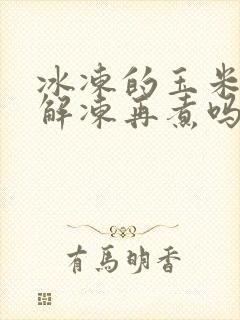 冰冻的玉米
解冻再煮吗
有馬明香